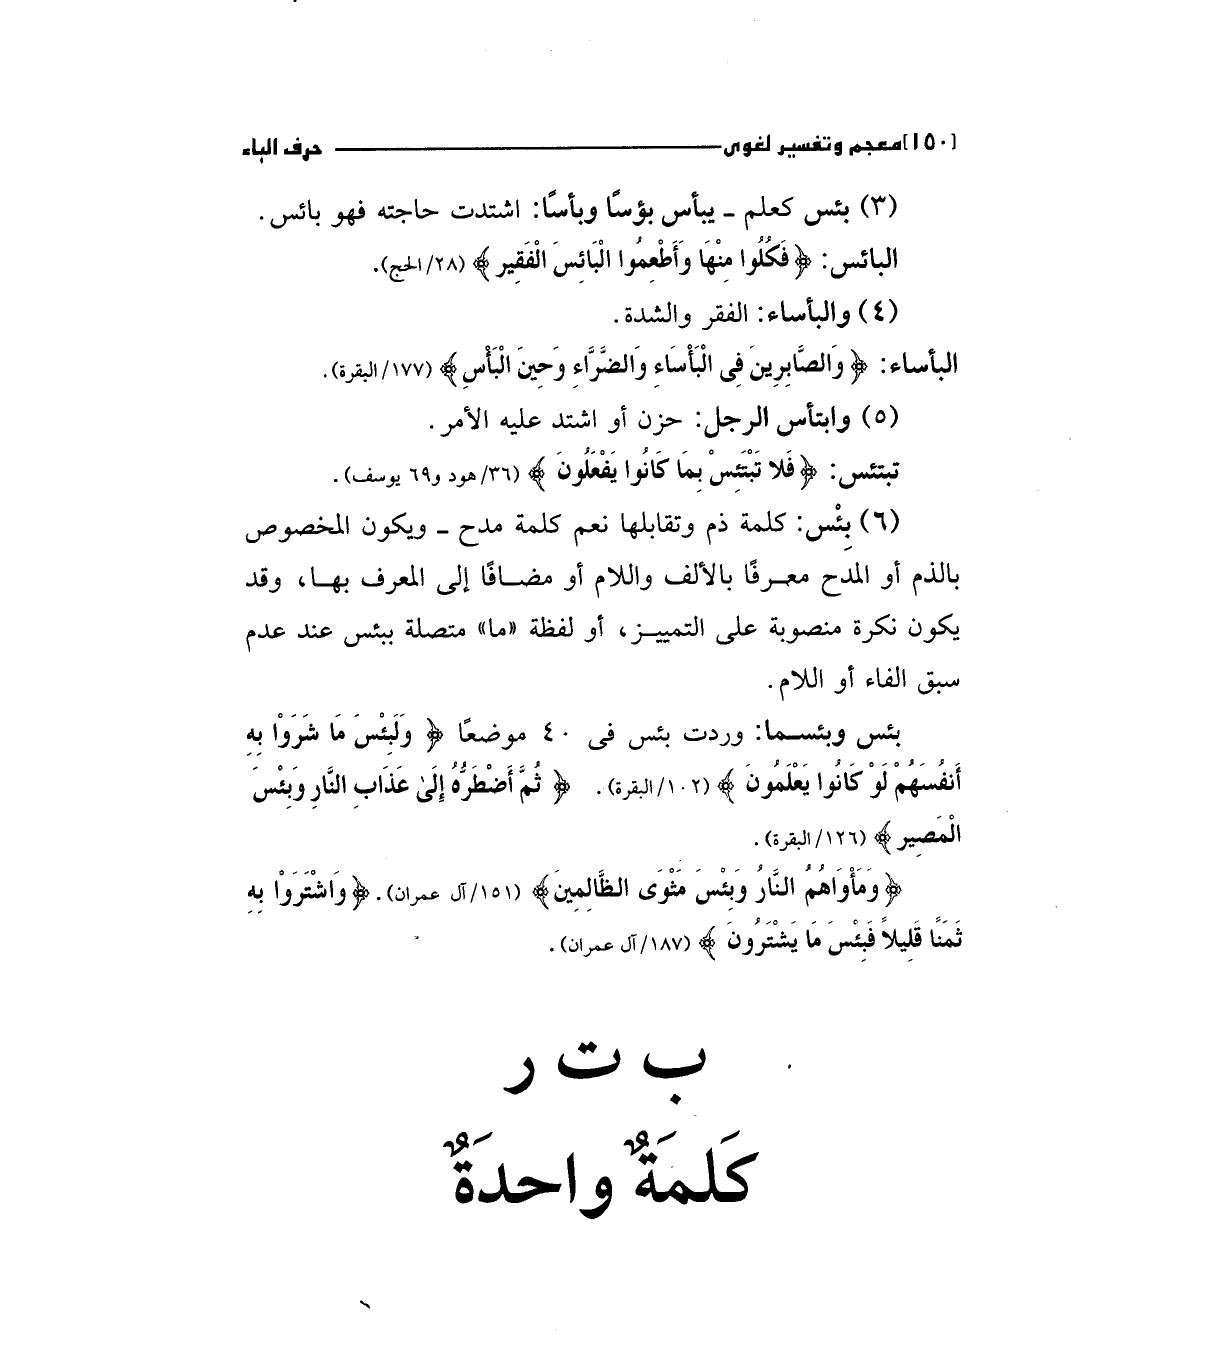 [١٥٠] معجم وتفسير لغوى حرف الباء
(٣) بئس كعلم ـ يبأس بؤسًا وبأسًا: اشتدت حاجته فهو بائس.
البائس: ﴿فَكُلُوا مِنْهَا وَأَطْعِمُوا الْبَائِسَ الْفَقِيرِ﴾ (٢٨/الحج).
(٤) والبأساء: الفقر والشدة.
البأساء: ﴿وَالصَّابِرِينَ فِى الْبَأْسَاءِ وَالضَّرَّاءِ وَحِينَ الْبَأْسِ﴾ (١٧٧/البقرة).
(٥) وابتأس الرجل: حزن أو اشتد عليه الأمر.
تبتئس: ﴿فَلا تَبْتَئِسْ بِمَا كَانُوا يَفْعَلُونَ﴾ (٣٦/هود و٦٩ يوسف).
(٦) بِئْس: كلمة ذم وتقابلها نعم كلمة مدح ـ ويكون المخصوص
بالذم أو المدح معرفًا بالألف واللام أو مضافًا إلى المعرف بها، وقد
يكون نكرة منصوبة على التمييز، أو لفظة «ما» متصلة ببئس عند عدم
سبق الفاء أو اللام.
بئس وبئسما: وردت بئس فى ٤٠ موضعًا ﴿وَلَبِئْسَ مَا شَرَوْا بِهِ
أَنفُسَهُمْ لَوْ كَانُوا يَعْلَمُونَ﴾ (١٠٢/البقرة). ﴿ثُمَّ أَضْطَرُّهُ إِلَىٰ عَذَابِ النَّارِ وَبِئْسَ
الْمَصِير﴾ (١٢٦/البقرة).
﴿وَمَأْوَاهُمُ النَّارُ وَبِئْسَ مَثْوَى الظَّالِمِينَ﴾ (١٥١/آل عمران). ﴿وَاشْتَرَوْا بِهِ
ثَمَنًا قَلِيلاً فَبِئْسَ مَا يَشْتَرُونَ﴾ (١٨٧/آل عمران).
ب ت ر
كَلمَةٌ واحدَةٌ